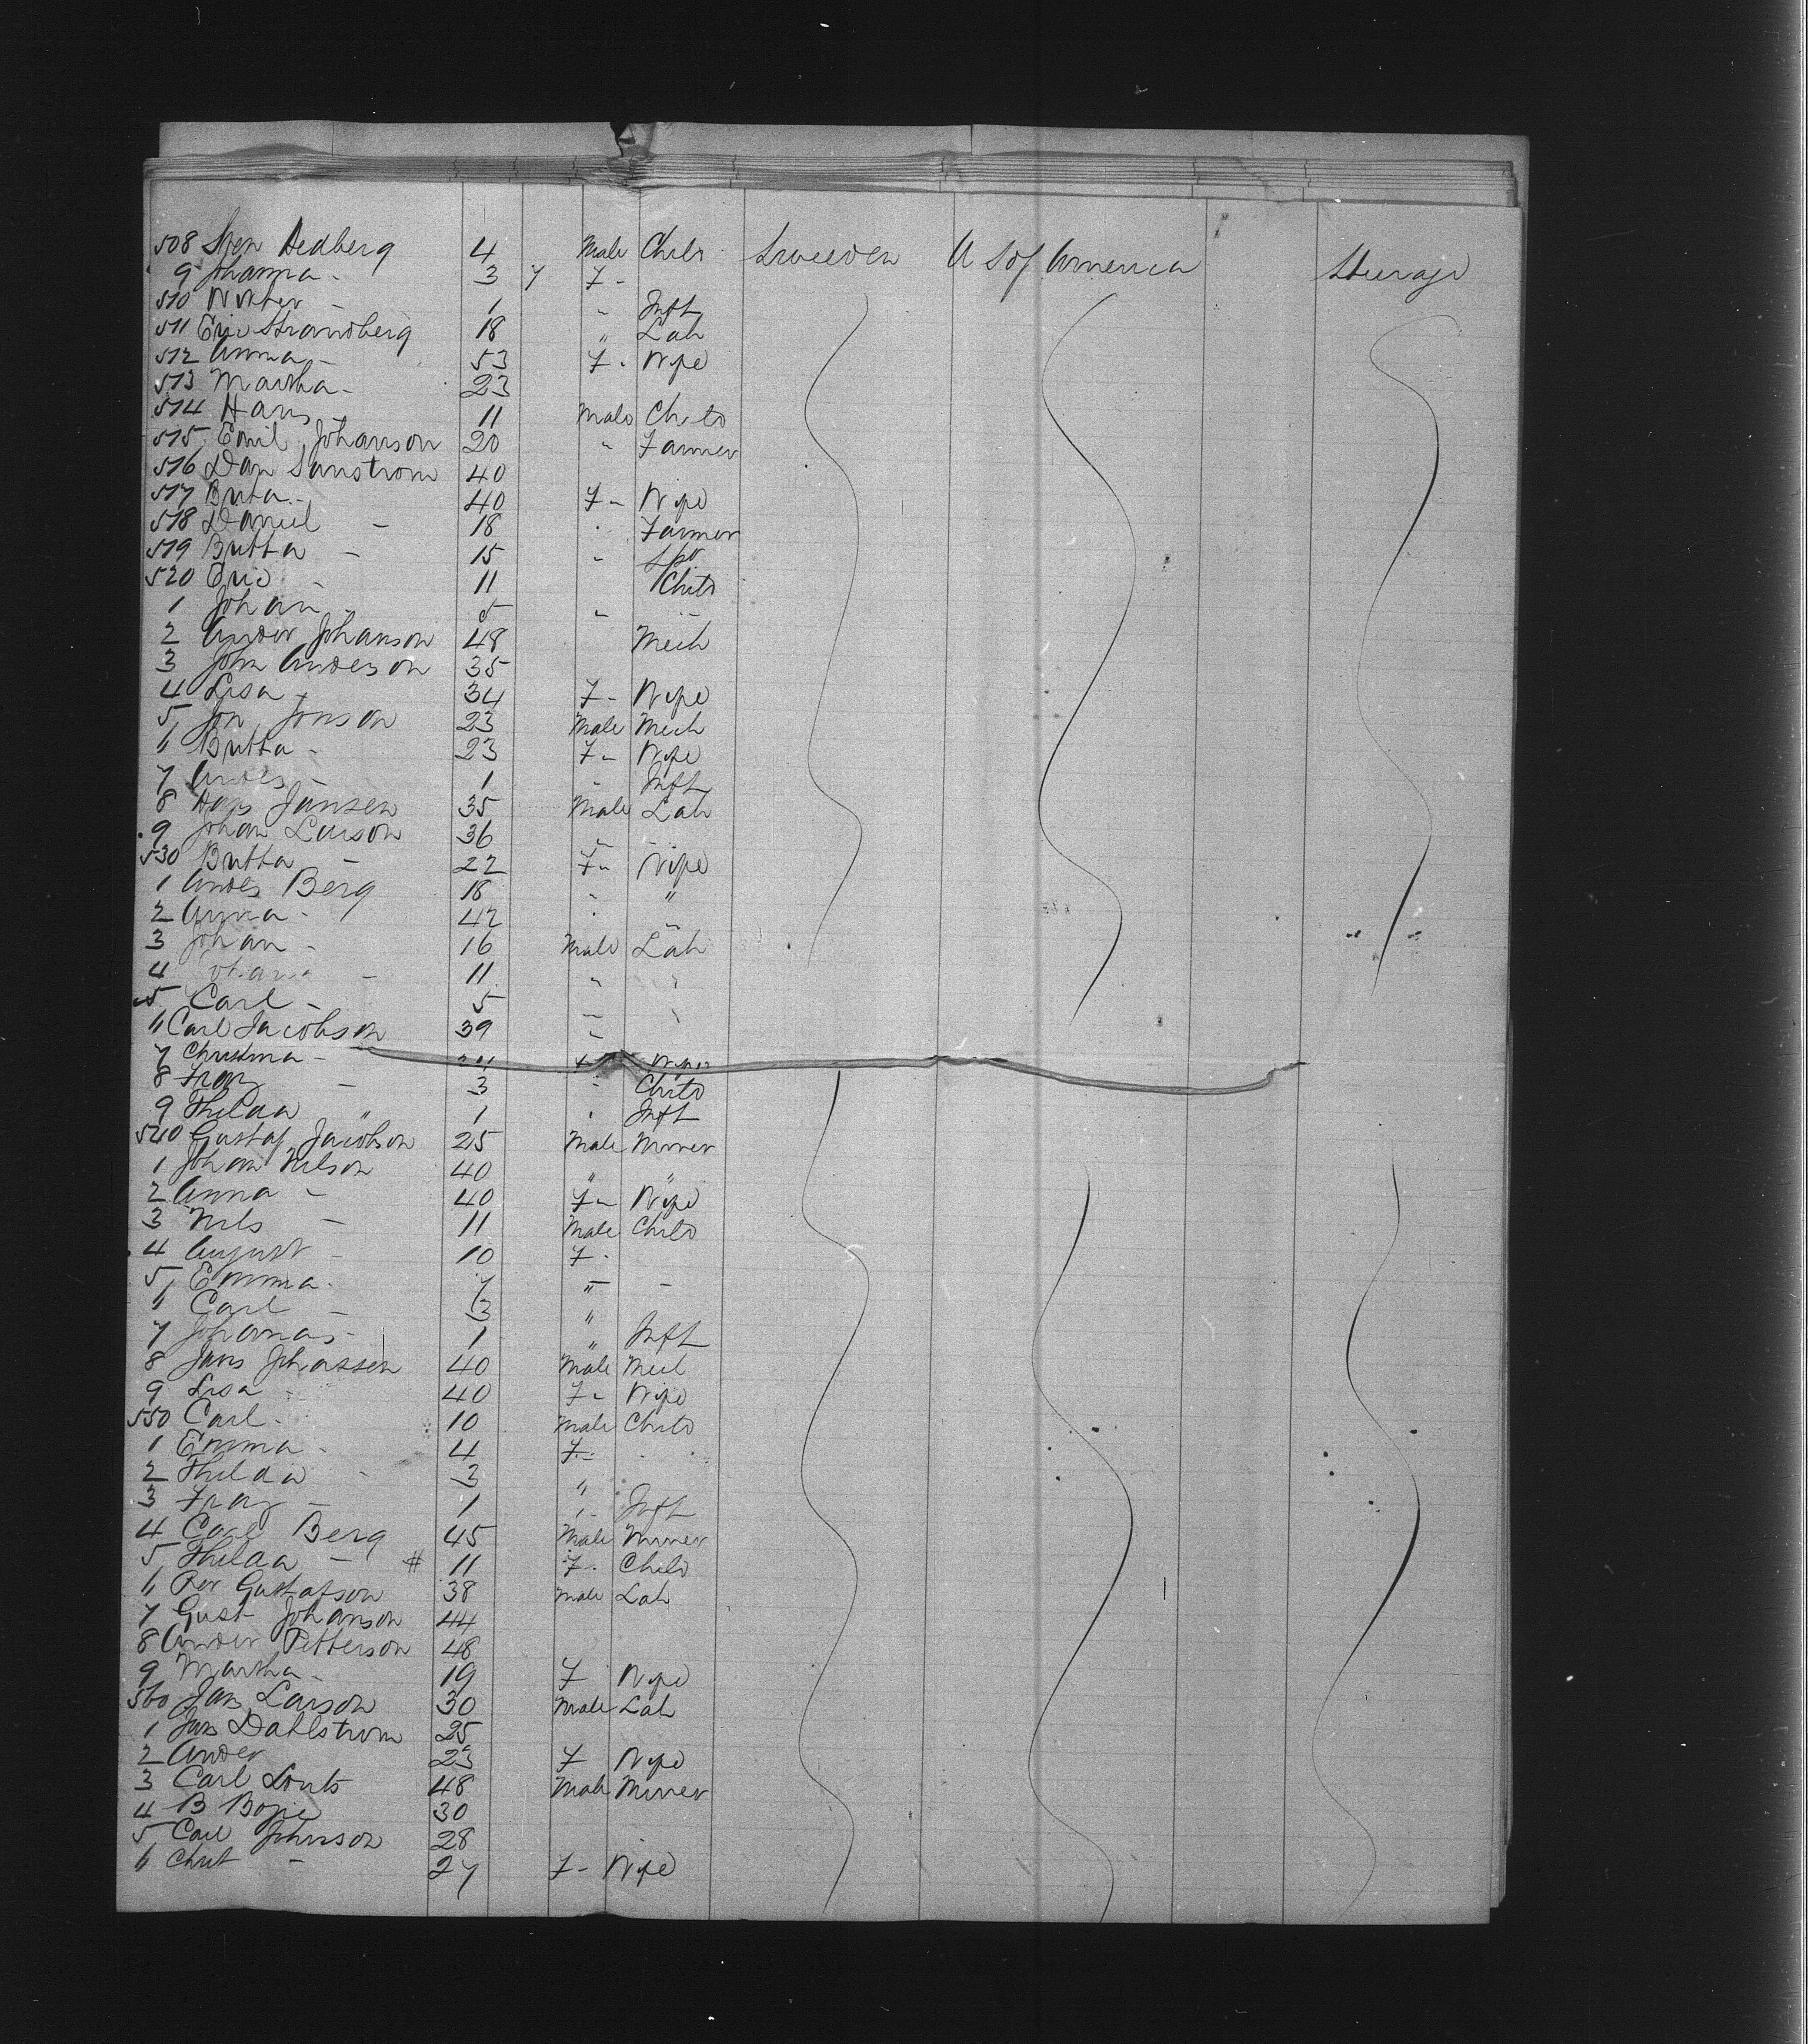 508 Sven Hedberg 4 Male Child Sweeden U S of America Steerage
9 Johanna - 3 7 F -
510 - 1 " Inft
511 Eric Strandberg 18 " Lab
512 Anna - 53 F - Wife
513 Martha - 23
514 Hans - 11 Male Child
515 Emil Johanson 20 " Farmer
516 Dan Sanstrom 40
517 Brita - 40 F - Wife
518 Daniel - 18 " Farmer
519 Britta - 15 " Spr
520 Eric - 11 Child
1 Johan - 5 " "
2 Ander Johanson 48 Mech
3 John Anderson 35
4 Lisa - 34 F - Wife
5 Jon Jonson 23 Male Mech
6 Britta - 23 F - Wife
7 Andes - 1 " Inft
8 Hans Jansen 35 Male Lab
9 Johan Larson 36 " "
530 Britta - 22 F - Wife
1 Andes Berg 18 " "
2 Anna - 42 " "
3 Johan - 16 Male Lab
4 - 11 " "
5 Carl - 5 " "
6 Carl Jacobson 39 "
7 Christina - F Wife
8 Franz - 3 " Child
9 Thilda " 1 " Inft
540 Gustaf Jacobson 25 Male Miner
1 Johan Nilson 40 " "
2 Anna - 40 F - Wife
3 Nils - 11 Male Child
4 August - 10 F -
5 Emma - 7 " -
6 Carl - 3 "
7 Johanas - 1 " Inft
8 Jans Johassen 40 Male Mech
9 Lisa - 40 F - Wife
550 Carl - 10 Male Child
1 Emma - 4 F -
2 Thilda - 3 "
3 Franz - 1 " Inft
4 Carl Berg 45 Male Miner
5 Thilda - # 11 F - Child
6 Per Gustafson 38 Male Lab
7 Gust Johanson 44
8 Ander Petterson 48
9 Martha - 19 F Wife
560 Jans Larson 30 Male Lab
1 Jans Dahlstrom 25
2 Ander 23 F Wife
3 Carl 48 Male Miner
4 B 30
5 Carl Johnson 28
6 Christ - 27 F - Wife